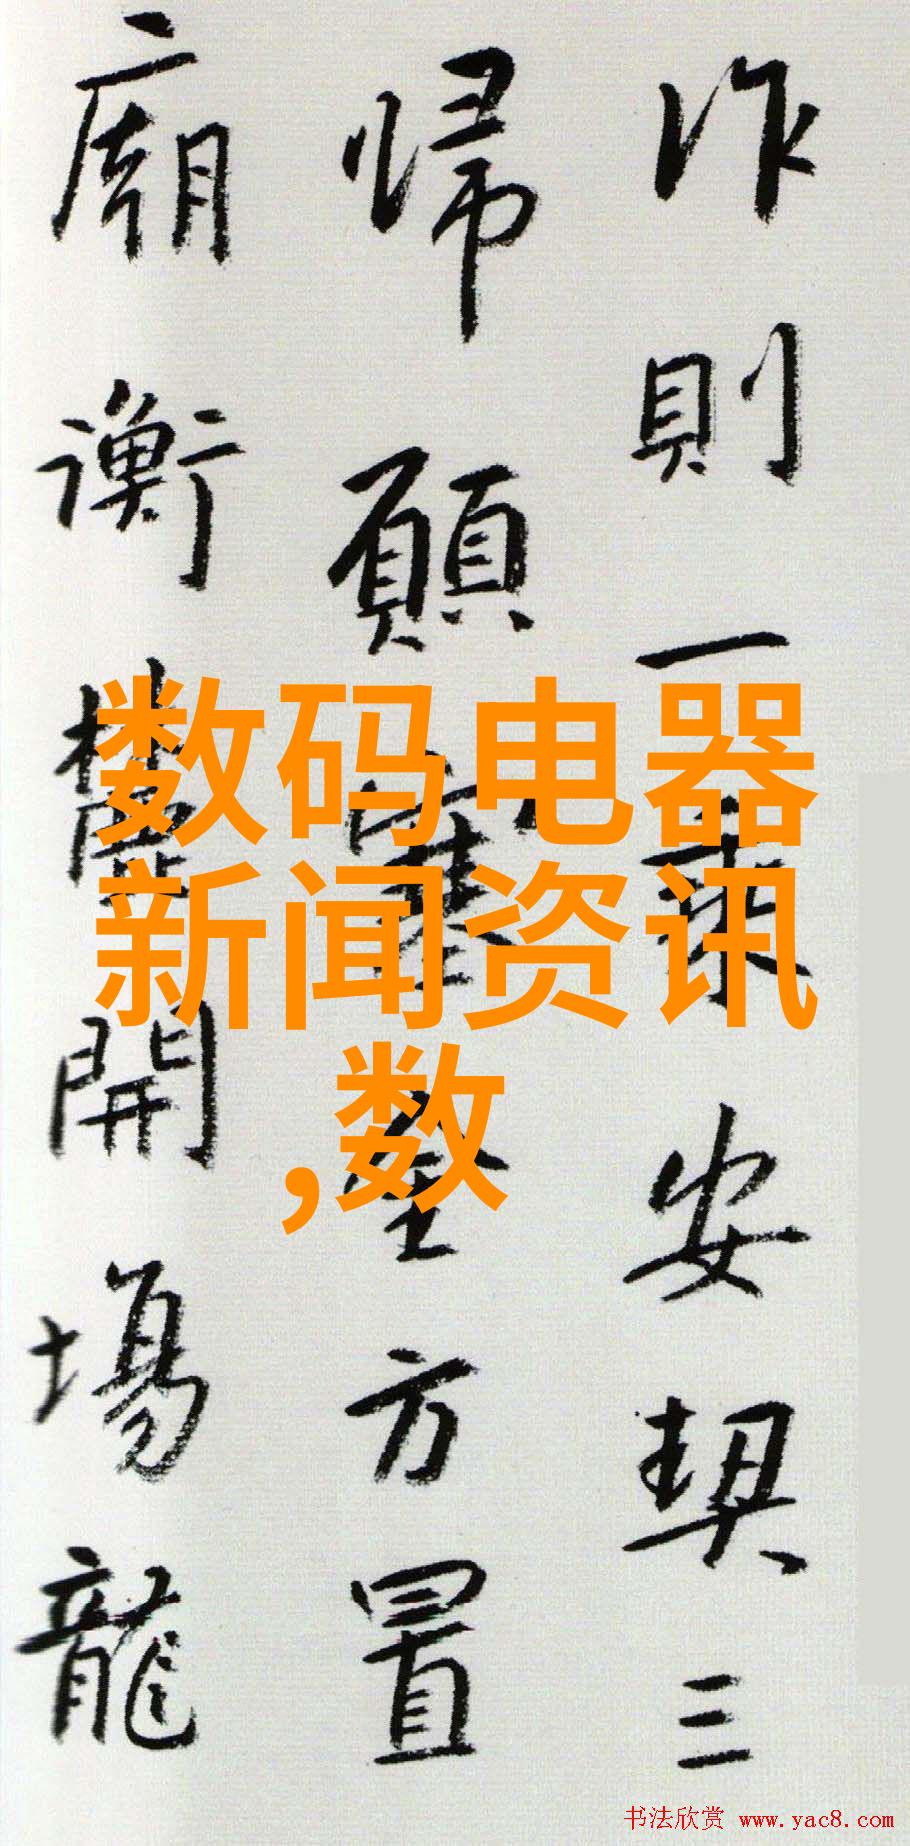 作則一安契三
歸願方置
廟衡麓開場龍
数码电器
新闻资讯
,数
书法欣赏 www.yac8.com